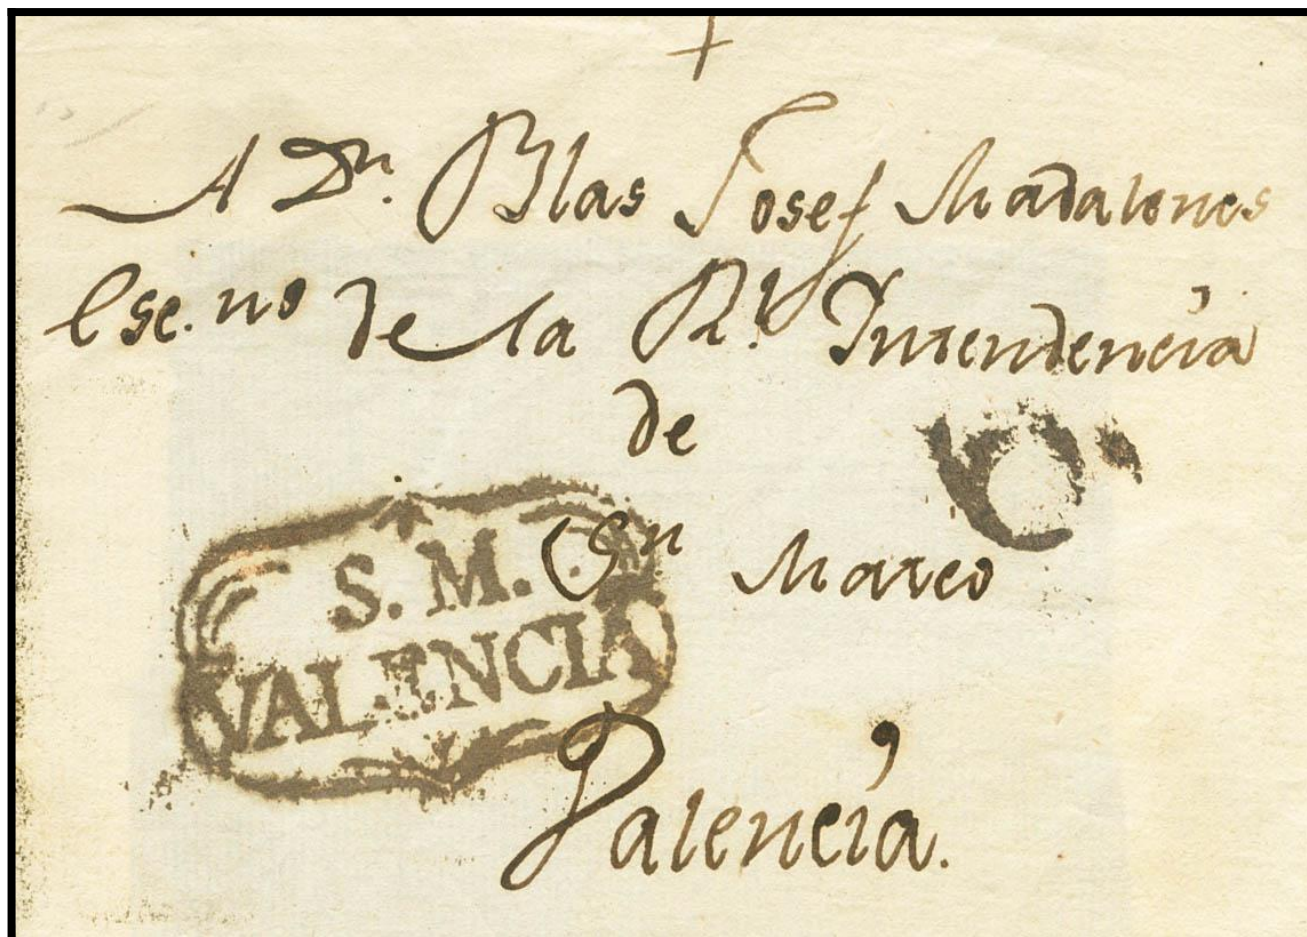 A Dn. Blas Josef Madalenes
Esc.no de la Rl. Intendencia
de
Sn Mateo
S. M.
VALENCIA
Valencia.